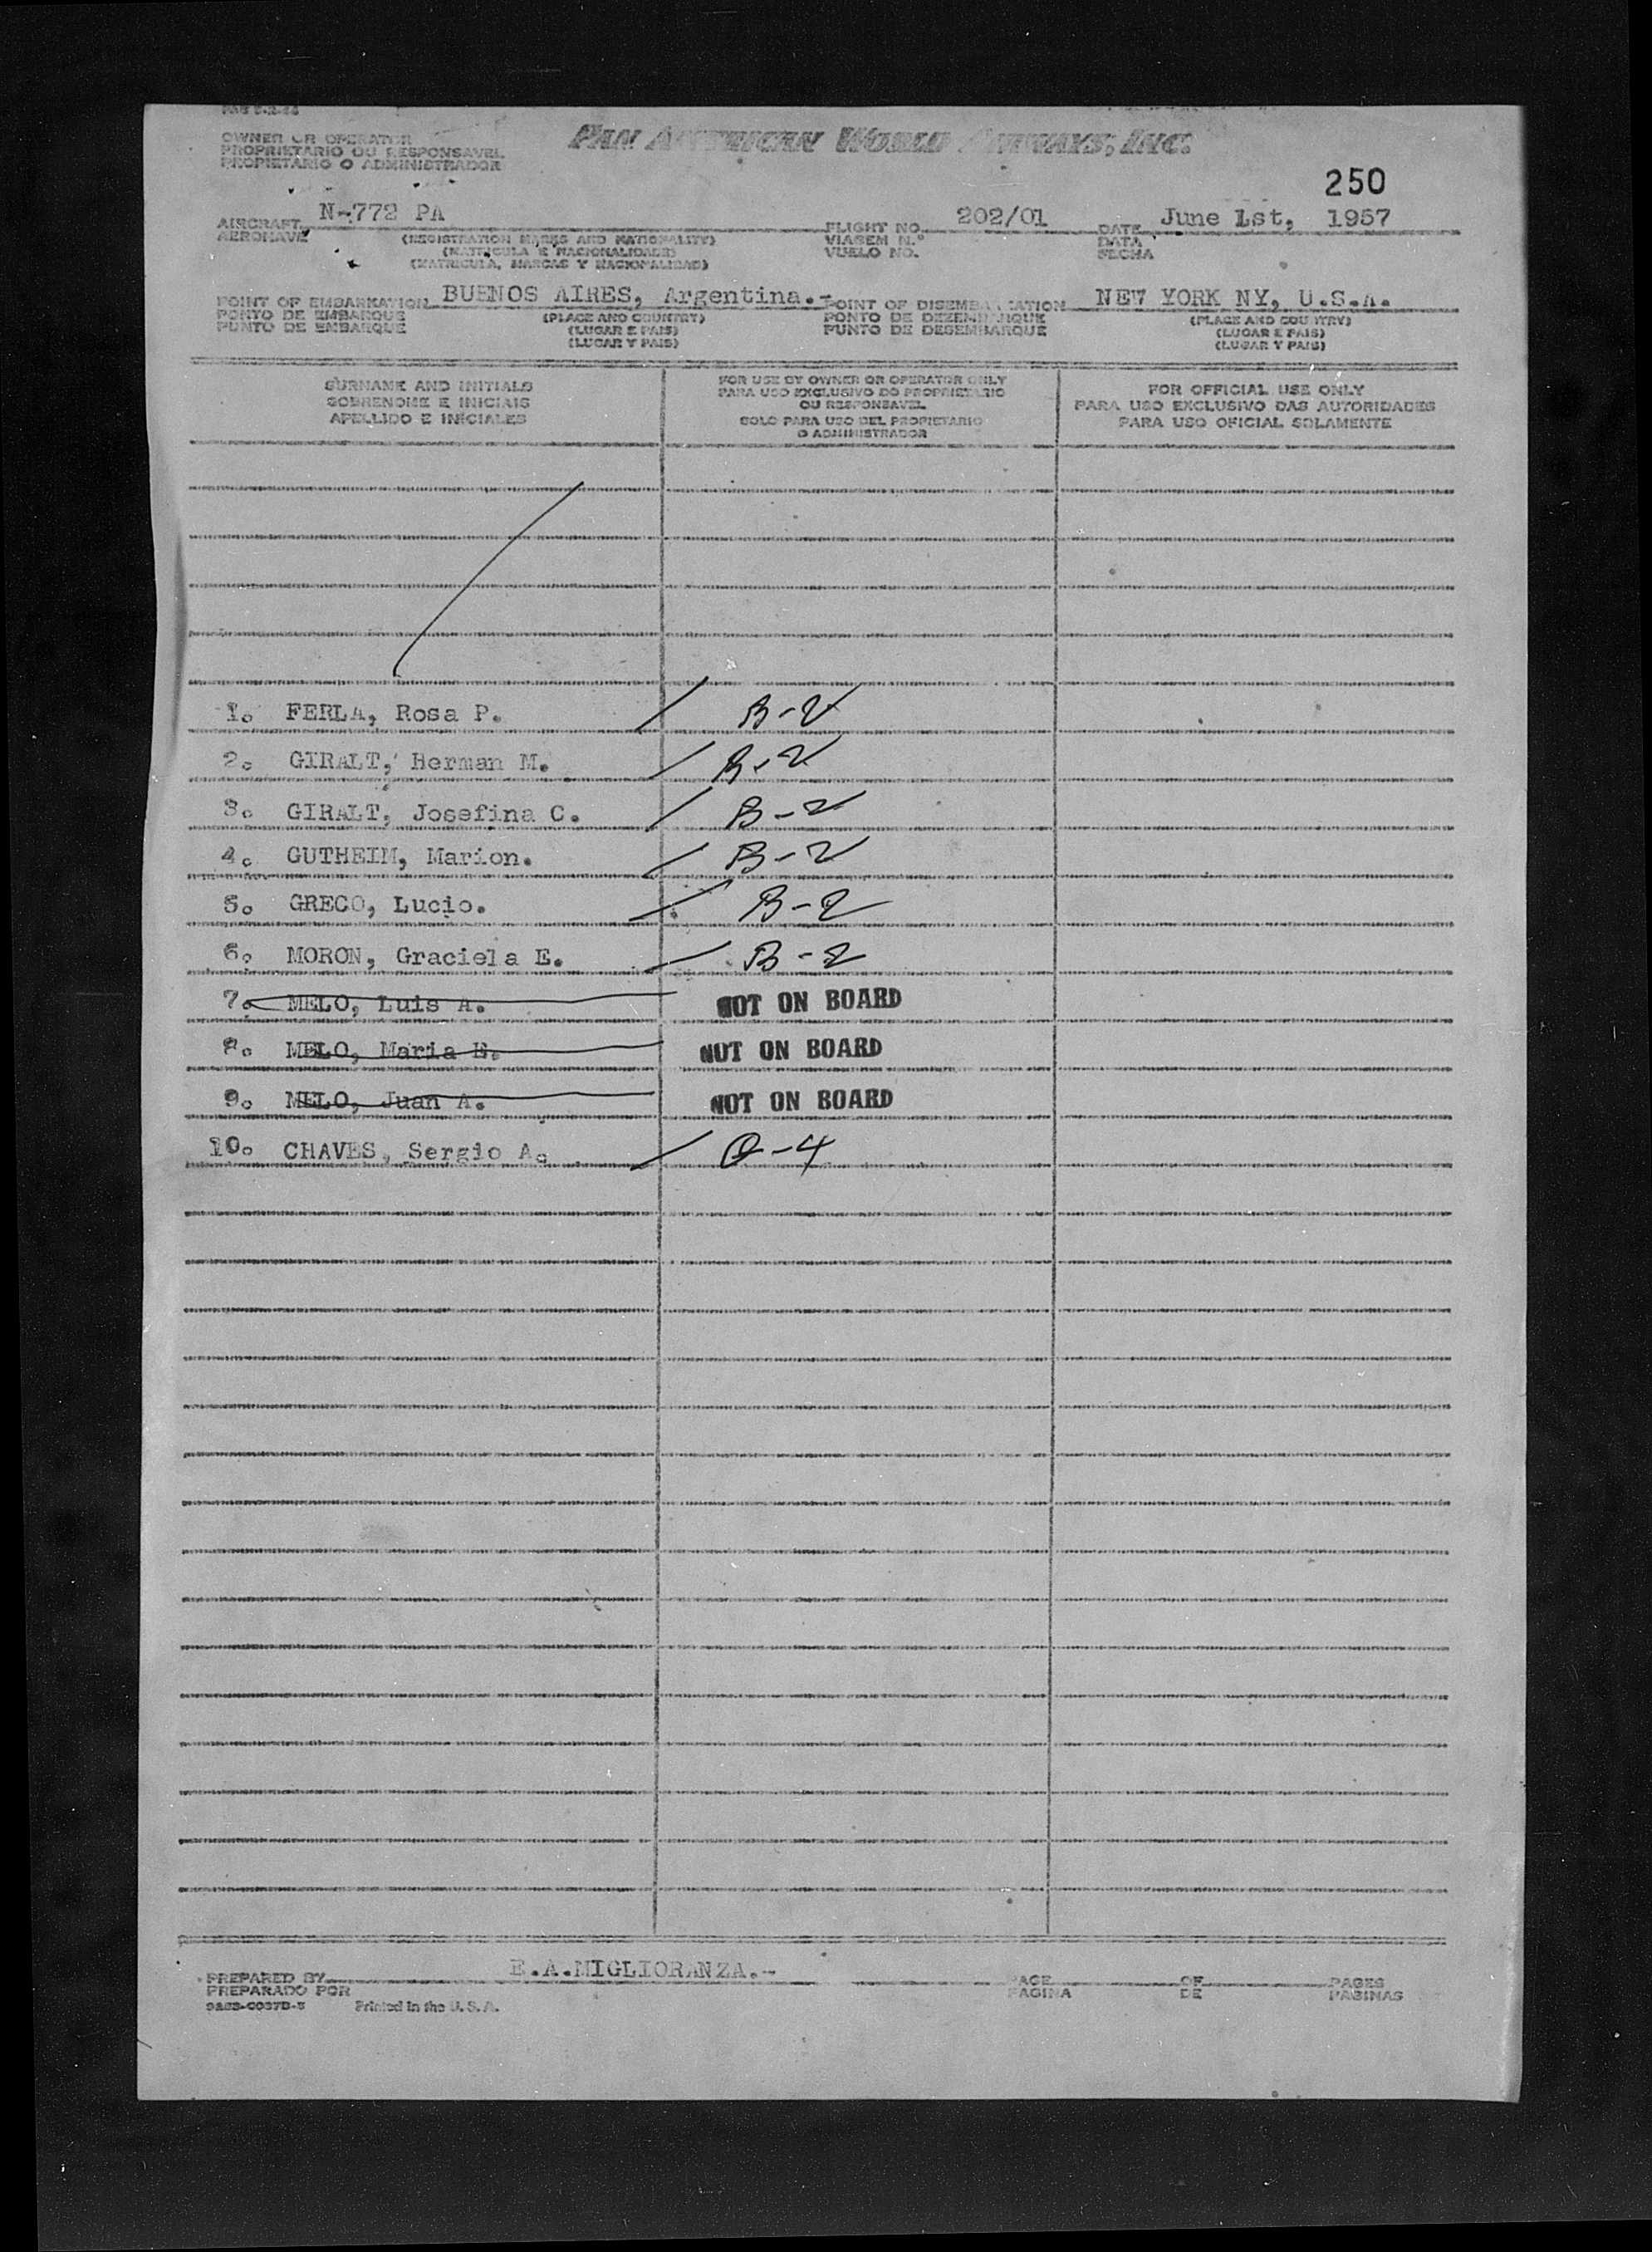 OWNER OR OPERATOR
PROPRIETARIO OU RESPONSAVEL
PROPIETARIO O ADMINISTRADOR
PAN AMERICAN WORLD AIRWAYS, INC.
250
AIRCRAFT N-772 PA FLIGHT NO. 202/01 DATE June 1st, 1957
AERONAVE (REGISTRATION MARKS AND NATIONALITY) VIAGEM N.º DATA
(MATRICULA E NACIONALIDADE) VUELO NO. FECHA
(MATRICULA, MARCAS Y NACIONALIDAD)
POINT OF EMBARKATION BUENOS AIRES, Argentina.- POINT OF DISEMBARKATION NEW YORK NY, U.S.A.
PONTO DE EMBARQUE (PLACE AND COUNTRY) PONTO DE DEZEMBARQUE (PLACE AND COUNTRY)
PUNTO DE EMBARQUE (LUGAR E PAIS) PUNTO DE DESEMBARQUE (LUGAR E PAIS)
(LUGAR Y PAIS) (LUGAR Y PAIS)
SURNAME AND INITIALS
SOBRENOME E INICIAIS
APELLIDO E INICIALES
FOR USE BY OWNER OR OPERATOR ONLY
PARA USO EXCLUSIVO DO PROPRIETARIO
OU RESPONSAVEL
SOLO PARA USO DEL PROPIETARIO
O ADMINISTRADOR
FOR OFFICIAL USE ONLY
PARA USO EXCLUSIVO DAS AUTORIDADES
PARA USO OFICIAL SOLAMENTE
1. FERLA, Rosa P. B-2
2. GIRALT, Herman M. B-2
3. GIRALT, Josefina C. B-2
4. GUTHEIM, Marion. B-2
5. GRECO, Lucio. B-2
6. MORON, Graciela E. B-2
7. MELO, Luis A. NOT ON BOARD
8. MELO, Maria E. NOT ON BOARD
9. MELO, Juan A. NOT ON BOARD
10. CHAVES, Sergio A. O-4
PREPARED BY E.A.MIGLIORANZA.- PAGE OF PAGES
PREPARADO POR PAGINA DE PAGINAS
Printed in the U.S.A.